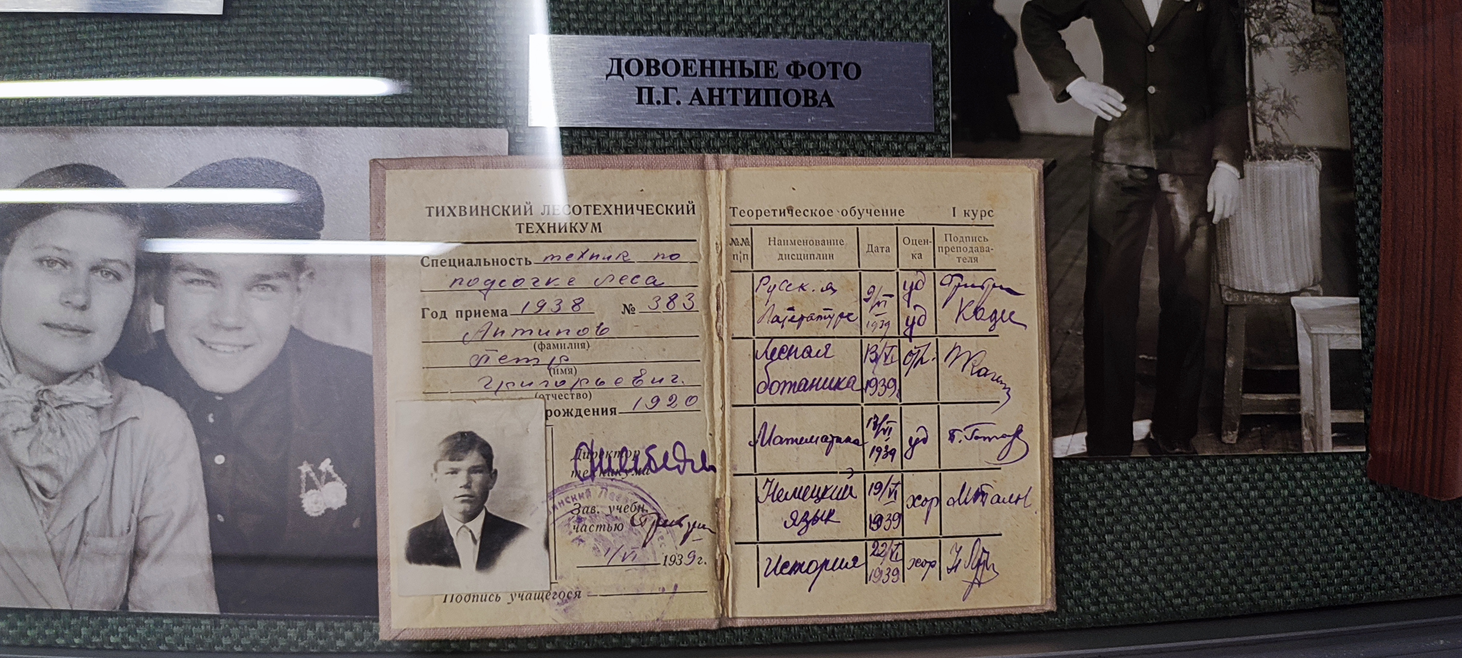 ДОВОЕННЫЕ ФОТО
П.Г. АНТИПОВА
ТИХВИНСКИЙ ЛЕСОТЕХНИЧЕСКИЙ
ТЕХНИКУМ
Специальность техник по
подсочке леса
Год приема 1938 № 383
Антипов
(фамилия)
Петр
(имя)
Григорьевич.
(отчество)
рождения 1920
Директор
техникума
Зав. учебн.
частью
1/VI 1939г.
Подпись учащегося
Теоретическое обучение I курс
№№ п/п Наименование дисциплин Дата Оцен-ка Подпись преподава-теля
Русск. яз уд
Литература 9/VI 1939 уд
Лесная ботаника 13/VI 1939 отл.
Математика 17/VI 1939 уд
Немецкий язык 19/VI 1939 хор
История 22/VI 1939 хор